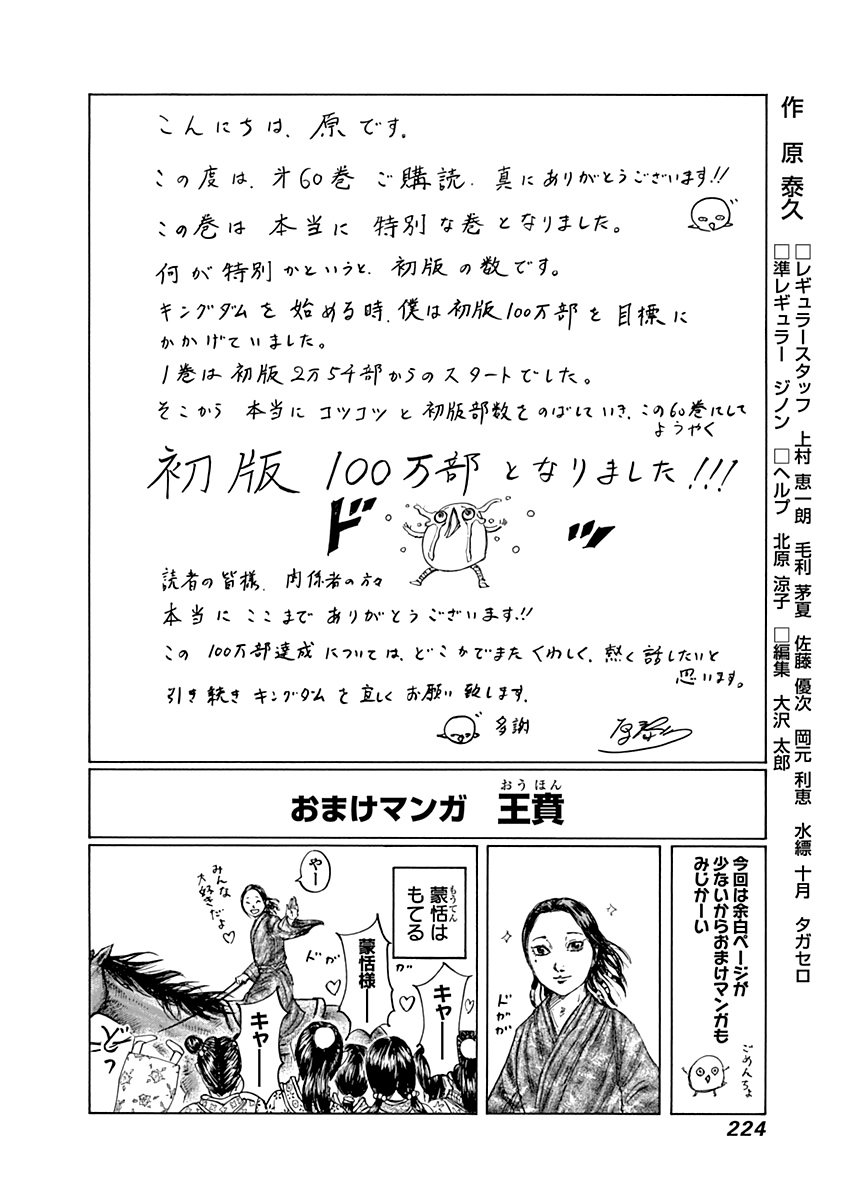 作 原 泰久
□レギュラースタッフ 上村 恵一朗 毛利 茅夏 佐藤 優次 岡元 利恵 水縹 十月 タガセロ
□準レギュラー ジノン □ヘルプ 北原 涼子 □編集 大沢 太郎
こんにちは、原です。
この度は、㐧60巻 ご購読、真にありがとうございます!!
この巻は 本当に 特別な巻となりました。
何が特別かというと、初版の数です。
キングダムを始める時、僕は初版100万部を目標に
かかげていました。
1巻は初版2万5千部からのスタートでした。
そこから 本当に コツコツと初版部数をのばしていき、この60巻にして
ようやく
初版 100万部となりました!!!
ドッ
読者の皆様、関係者の方々
本当に ここまで ありがとうございます!!
この 100万部達成については、どこかでまた くわしく、熱く話したいと
思います。
引き続き キングダムを宜しく お願い致します。
多謝
おまけマンガ 王賁
おうほん
今回は余白ページが
少ないからおまけマンガも
みじかーい
ごめんちょ
ドガガ
蒙恬は
もうてん
もてる
やー
みんな
大好きだよ♡
ドガ
ガ
キャー
蒙恬様ー
キャー
どっ
224